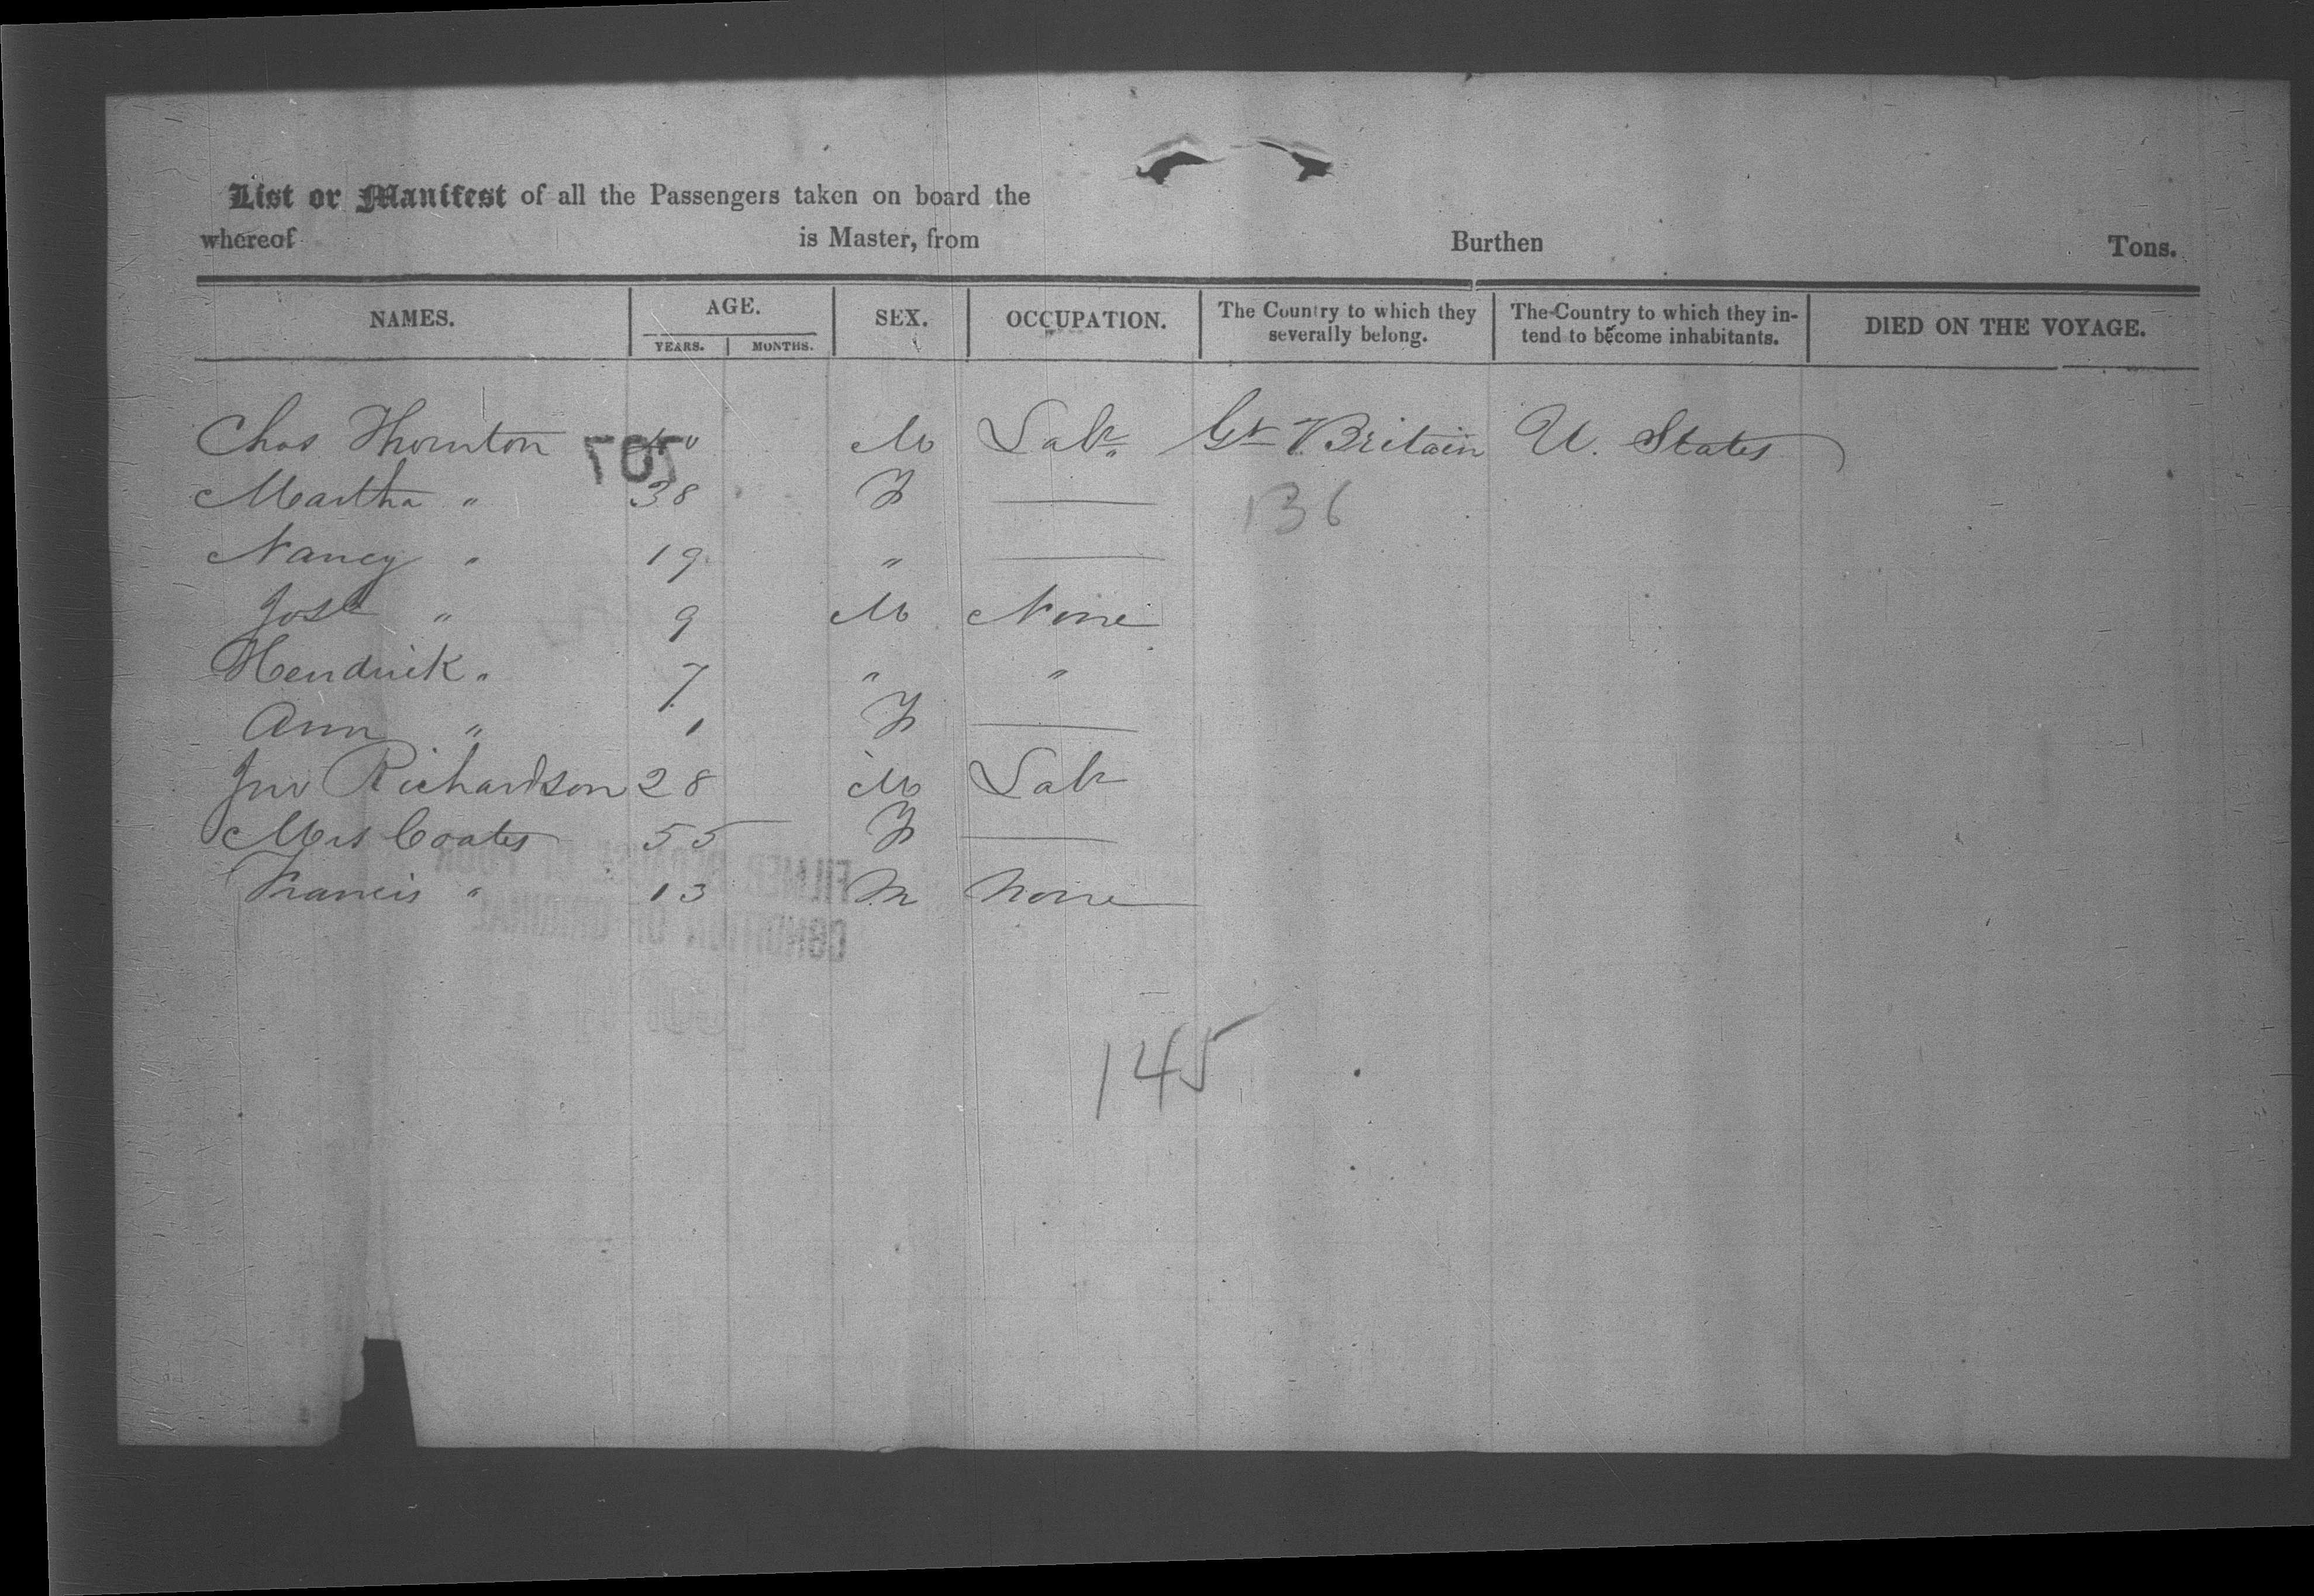 List or Manifest of all the Passengers taken on board the
whereof is Master, from Burthen Tons.
NAMES. AGE. SEX. OCCUPATION. The Country to which they severally belong. The Country to which they intend to become inhabitants. DIED ON THE VOYAGE.
YEARS. MONTHS.
Chas Thornton 40 M Labr Gt Britain U. States
707
Martha " 38 F —
136
Nancy " 19 " —
" 9 M None
Hendrick " 7 " "
Ann " 1 F —
Jno Richardson 28 M Labr
Mrs Coates 55 F —
Francis " 13 M None
FILMED
CONDITION OF ORIGINAL
145